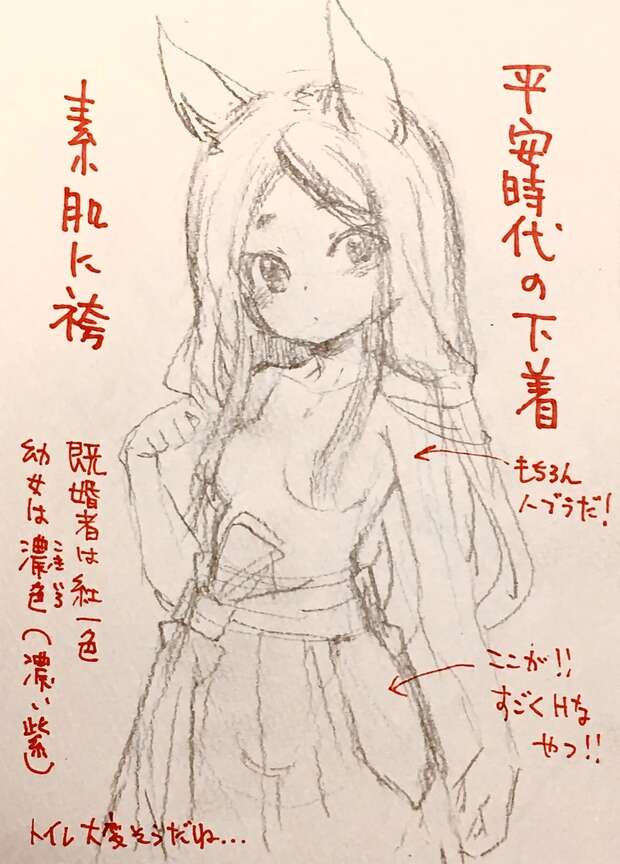 平安時代の下着
素肌に袴
もちろん
ノーブラだ!
ここが!!
すごくHな
やつ!!
既婚者は紅一色
幼女は濃色(濃い紫)
こきいろ
トイレ大変そうだね...